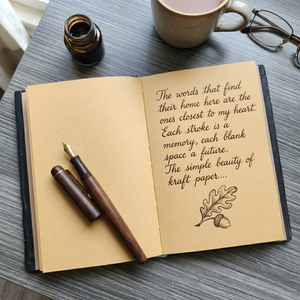 The words that find
their home here are the
ones closest to my heart.
Each stroke is a
memory, each blank
space a future.
The simple beauty of
kraft paper...